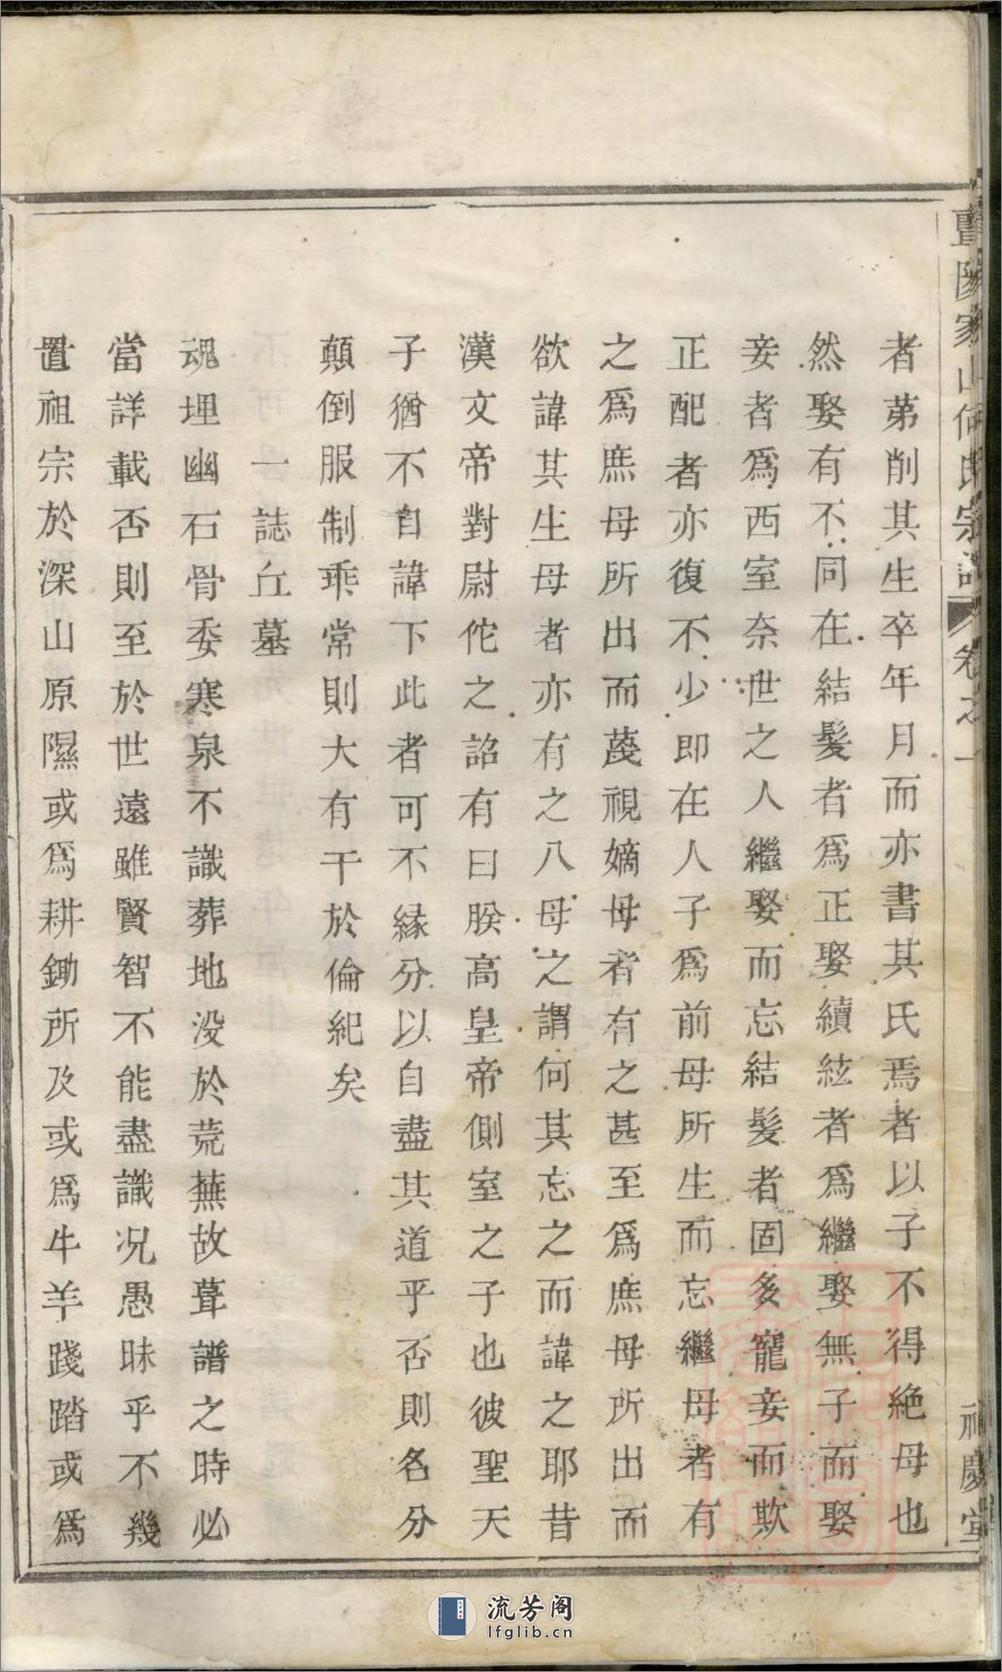 暨陽家山何氏宗譜 卷之一 祠慶堂
者第削其生卒年月而亦書其氏焉者以子不得絶母也
然娶有不同在結髪者爲正娶續絃者爲繼娶無子而娶
妾者爲西室奈世之人繼娶而忘結髪者固多寵妾而欺
正配者亦復不少即在人子爲前母所生而忘繼母者有
之爲庶母所出而蔑視嫡母者有之甚至爲庶母所出而
欲諱其生母者亦有之八母之謂何其忘之而諱之耶昔
漢文帝對尉佗之詔有曰朕高皇帝側室之子也彼聖天
子猶不自諱下此者可不緣分以自盡其道乎否則名分
顛倒服制乖常則大有干於倫紀矣
一誌丘墓
魂埋幽石骨委寒泉不識葬地没於荒蕪故葺譜之時必
當詳載否則至於世遠雖賢智不能盡識况愚昧乎不幾
置祖宗於深山原隰或爲耕鋤所及或爲牛羊踐踏或爲
流芳阁
lfglib.cn